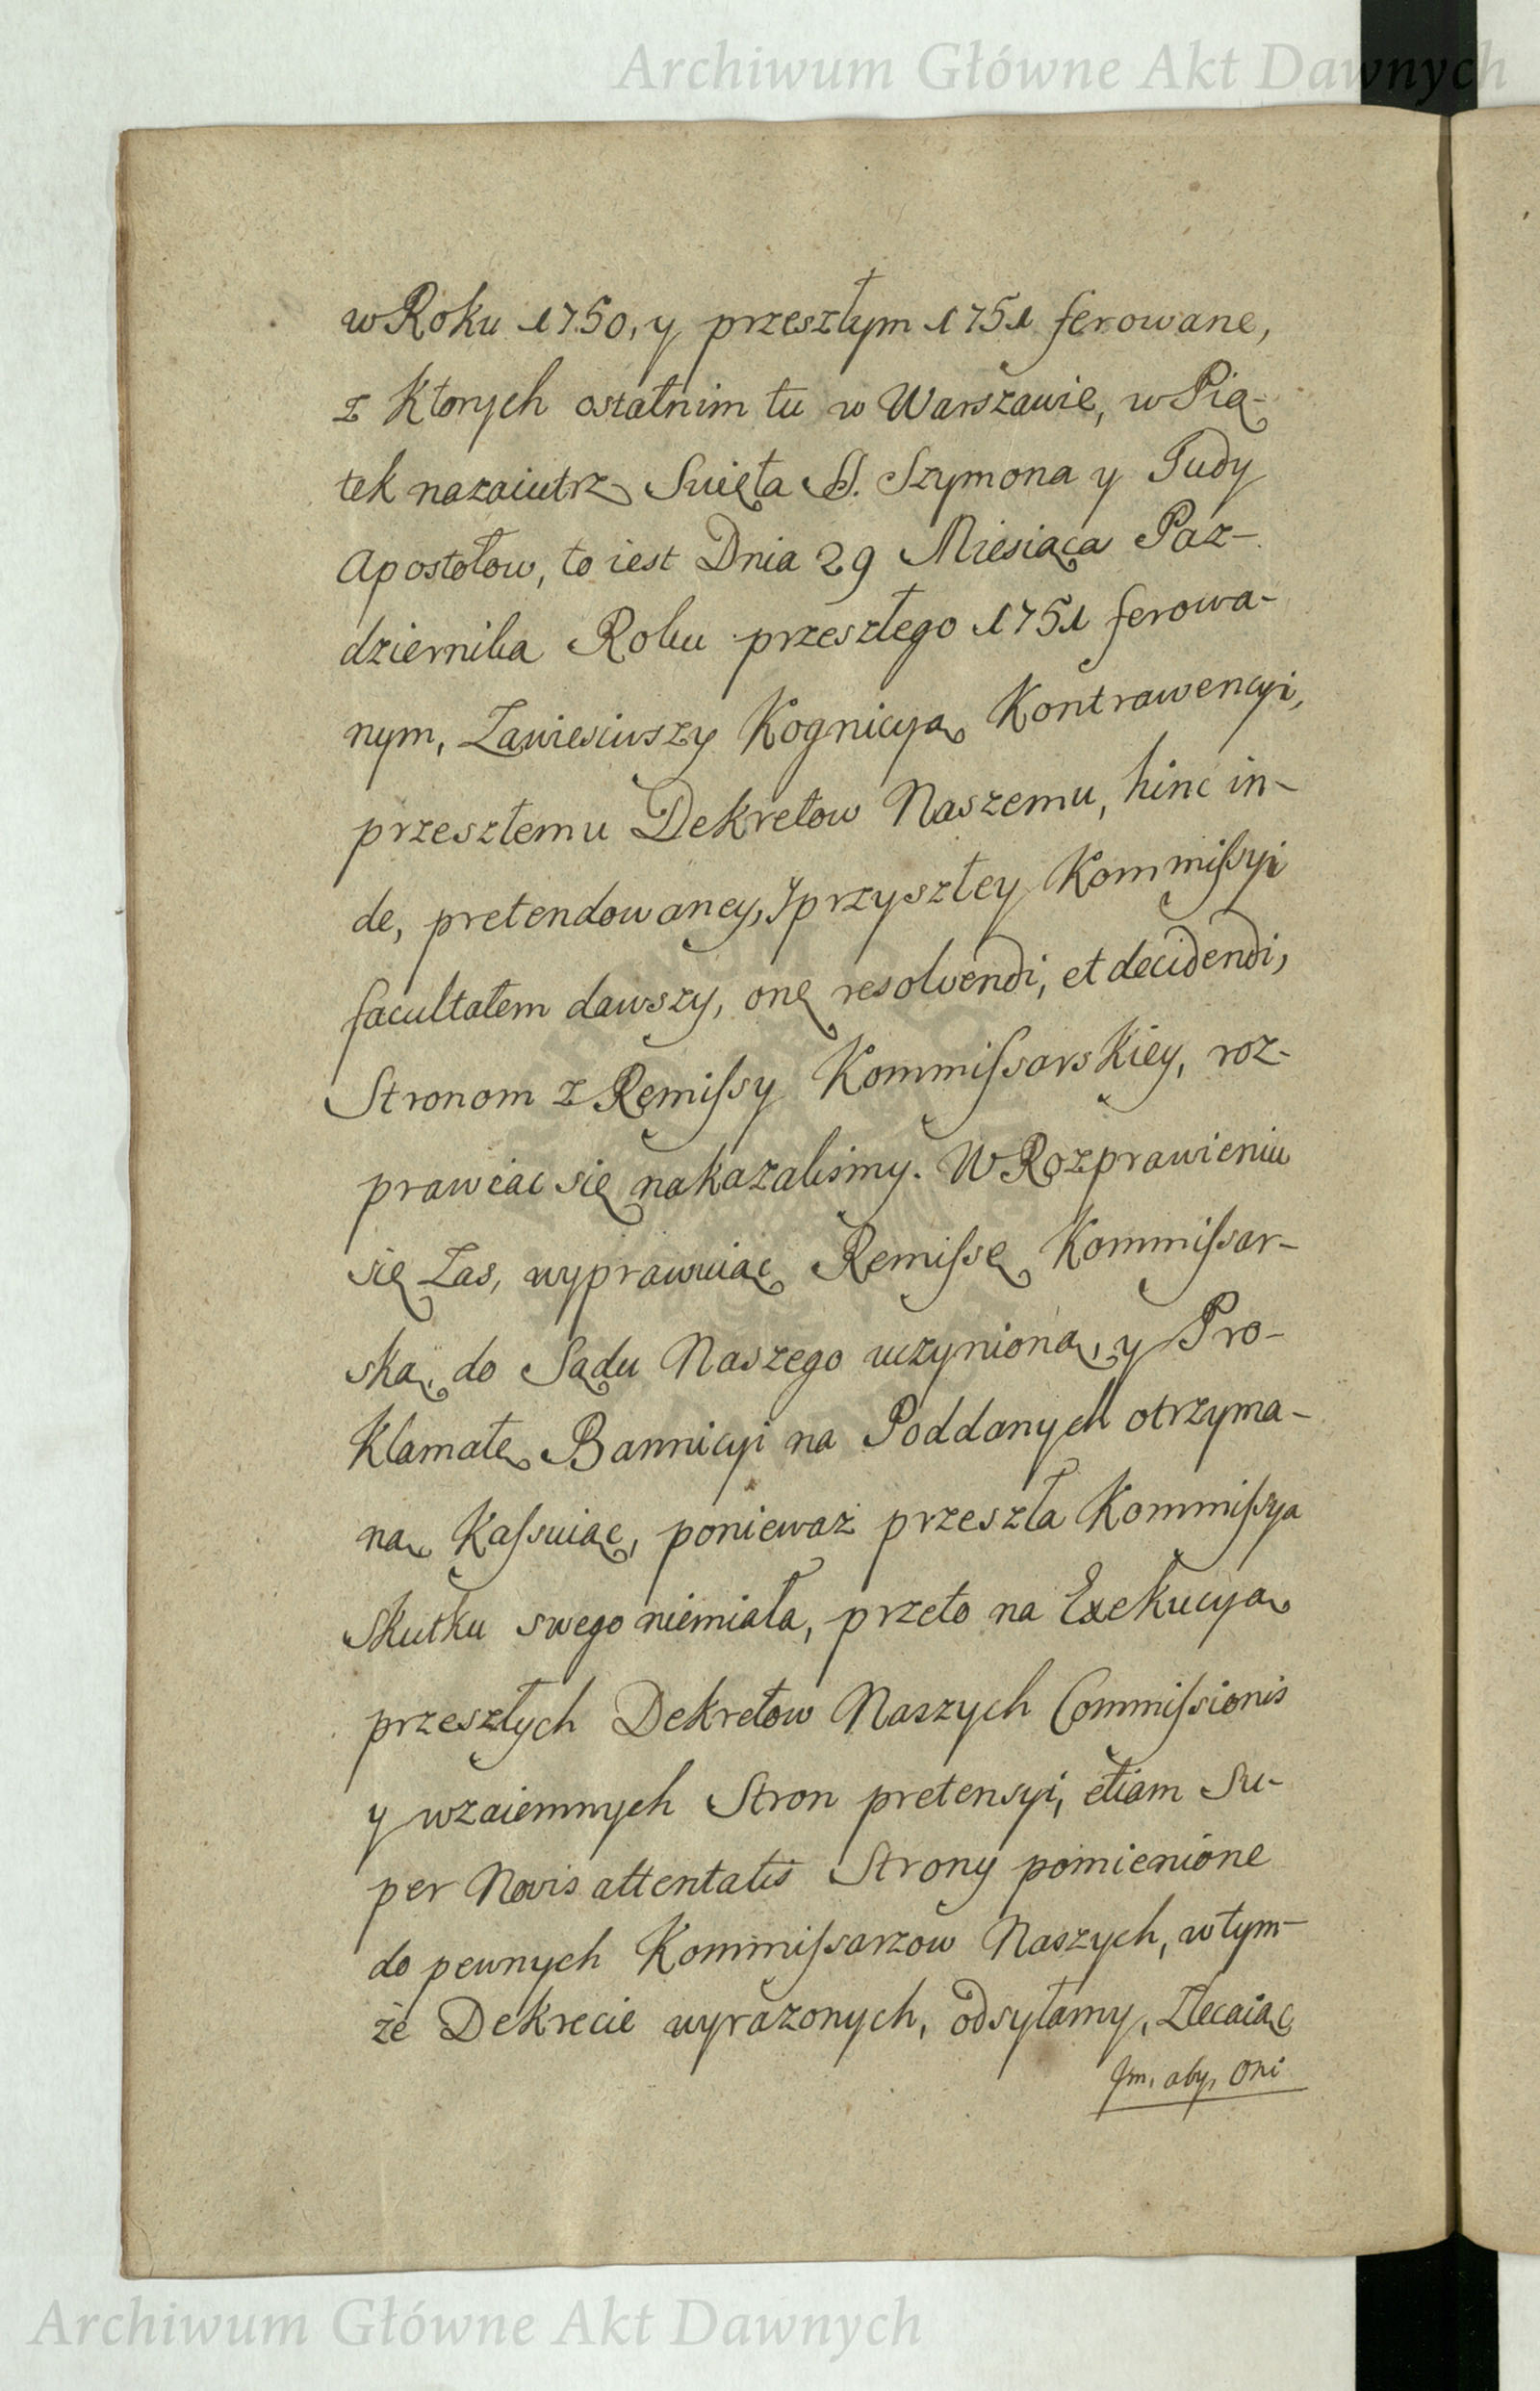 Archiwum Główne Akt Dawnych
w Roku 1750, y przeszłym 1751 ferowane,
z Ktorych ostatnim tu w Warszawie, w Pią-
tek nazaiutrz Swięta SS. Szymona y Judy
Apostołow, to iest Dnia 29 Miesiąca Paz-
dziernika Roku przeszłego 1751 ferowa-
nym, Zawiesiwszy Kognicyą Kontrawencyi,
przeszłemu Dekretow Naszemu, hinc in-
de, pretendowaney, y przyszłey Kommissyi
facultatem dawszy, onę resolvendi, et decidendi,
Stronom z Remissy Kommissarskiey, roz-
prawiac się nakazalismy. W Rozprawieniu
się Zas, wyprawuiąc Remissę Kommissar-
ską, do Sądu Naszego uczynioną, y Pro-
Klamatę Bannicyi na Poddanych otrzyma-
ną Kassuiąc, poniewaz przeszła Kommissya
Skutku swego niemiała, przeto na Exekucyą
przeszłych Dekretow Naszych Commissionis
y wzaiemnych Stron pretensyi, etiam Su-
per Novis attentatis Strony pomienione
do pewnych Kommissarzow Naszych, w tym-
że Dekrecie wyrazonych, odsyłamy, Zlecaiąc
Jm, aby, Oni
Archiwum Główne Akt Dawnych